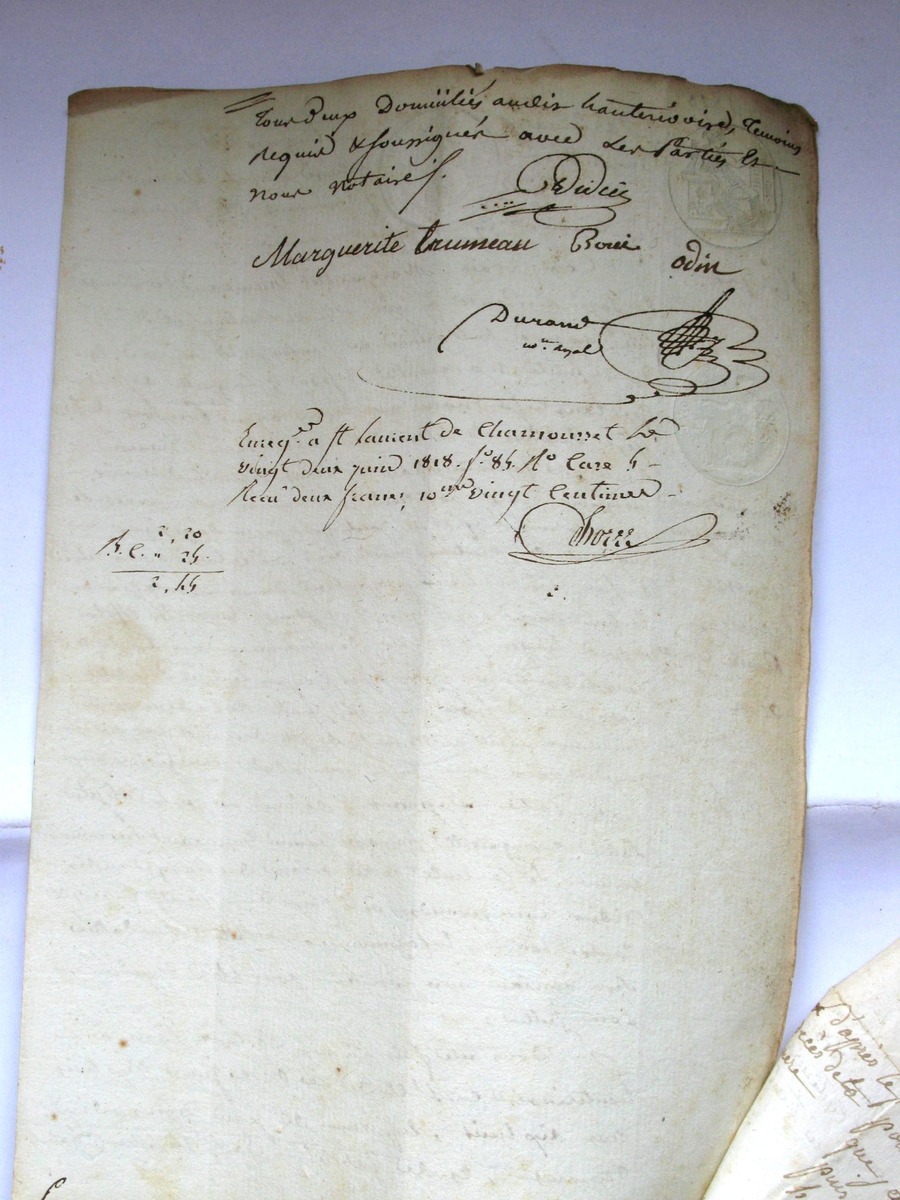 Tous deux Domiciliés audit hauterivoire, Temoins
requis & soussignés avec Les Parties Et
nous notaire /.
Marguerite trumeau
odin
Durand
nre. royal
Enregé. a St laurent de Chamousset Le
vingt deux juin 1818. fo. 84. Ro Case 5
Recu deux francs, 10me vingt Centimes
2, 20
25
2, 45
d'après le